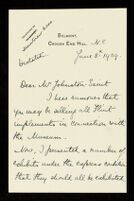 Belmont,
Crouch End Hill, N.8
June 8th 1929.
Dear Mr Johnston-Saint
I hear rumours that
you may be selling all Flint
implements in connection with
the Museum.
Now, I presented a number of
exhibits under the express condition
that they should all be exhibited